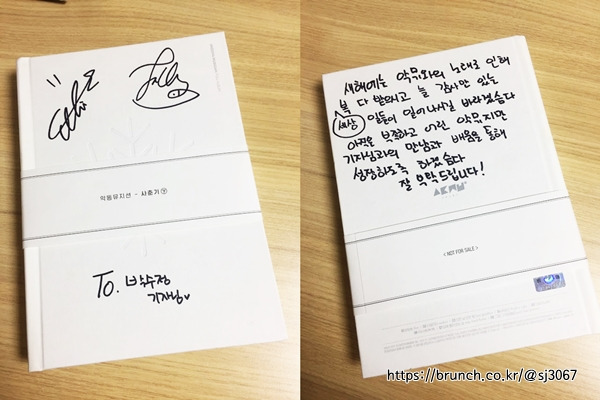 악동뮤지션 - 사춘기 ㊦
To. 박수정
기자님♡
새해에는 악뮤와의 노래로 인해
복 다 받으시고 늘 감사만 있는
세상 일들이 일어나시길 바라겠습다
아직은 부족하고 어린 악뮤지만
기자님과의 만남과 배움을 통해
성장하도록 하겠습다
잘 부탁드립니다!
AKMU
< NOT FOR SALE >
https://brunch.co.kr/@sj3067